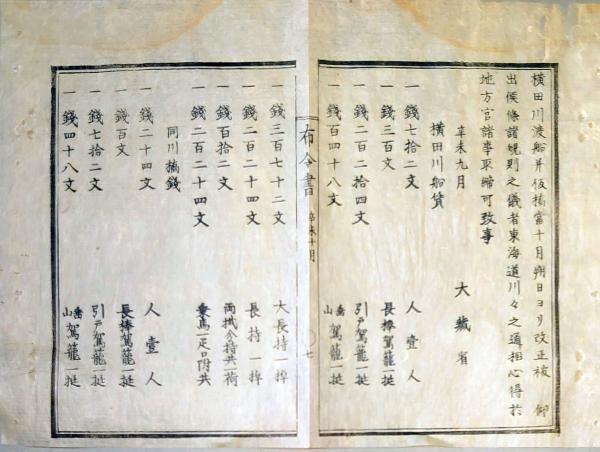 横田川渡船并仮橋當十月朔日ヨリ改正被 御
出候條諸規則之儀者東海道川々之通相心得於
地方官諸事取締可致事
辛未九月 大藏省
横田川船賃
一 錢七拾二文 人壹人
一 錢三百文 長棒駕籠一挺
一 錢二百二拾四文 引戸駕籠一挺
一 錢百四十八文 山駕籠一挺
布令書 辛未十月 〇七
一 錢三百七十二文 大長持一棹
一 錢二百二十四文 長持一棹
一 錢百拾二文 両掛分持共一荷
一 錢二百二十四文 乗馬一疋口附共
同川橋錢
一 錢二十四文 人壹人
一 錢百文 長棒駕籠一挺
一 錢七拾二文 引戸駕籠一挺
一 錢四十八文 山駕籠一挺